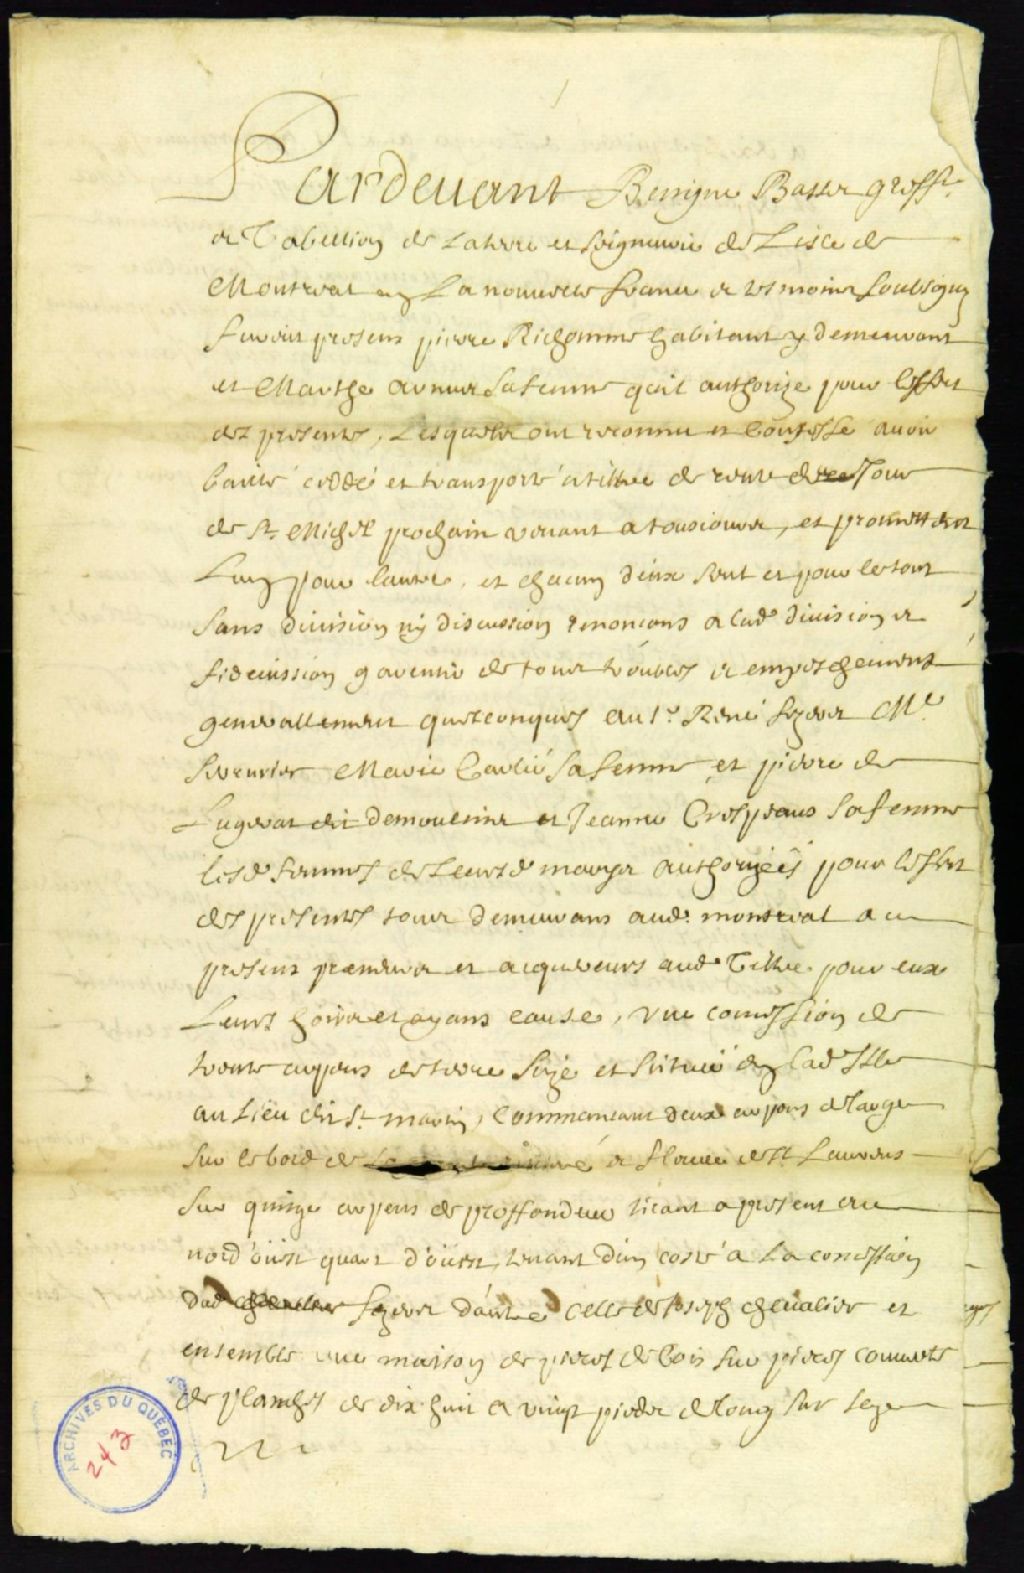 Pardevant Benigne Basset greffr
et Tabellion de La terre et Seigneurie de Lisle de
Montreal en La nouvelle France et tesmoins soubsignez
furent presens pierre Richomme habitant y demeurant
et Marthe Arnu sa femme qu'il authorize pour l'effect
des presentes, Lesquels ont reconnu et Confessé avoir
baillé ceddé et transporté a tiltre de rente du Jour
de St Michel prochain venant a tousiours, et promettent
L'un pour l'autre, et chacun d'eux seul et pour le tout
sans division ny discussion renonceans a lad division et
fideiussion garentir de tous troubles et empeschemens
generallement quelconques au Sr René Me
Serrurier Marie Carlié sa femme et pierre de
Lugerat dit demoulins et Jeanne Crespeaus sa femme
lesd femmes de leursd marys authorizéés pour l'effect
des presentes tous demeurans aud montreal a ce
presens preneurs et acquereurs aud Tiltre pour eux
Leurs hoirs et ayans cause, une concession de
trente arpens de terre size et Scituée en lad Isle
au lieu dit St martin, Commenceant deux arpens de large
sur le bord de fleuve de St Laurens
sur quinze arpens de proffondeur tirant a present au
nord'oüest quart d'oüest, tenant d'un costé a La concession
dud d'autre a Celle de Joseph chevalier et
ensemble une maison de pieces de bois sur pieces couverte
de planches de dix huit a vingt pieds de long sur seze
ARCHIVES DU QUÉBEC
243